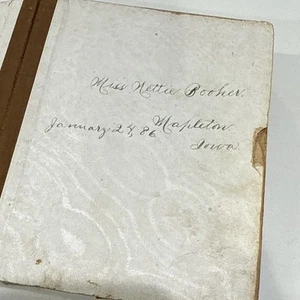 Miss Nettie Booher.
January 24, 86 Mapleton
Iowa